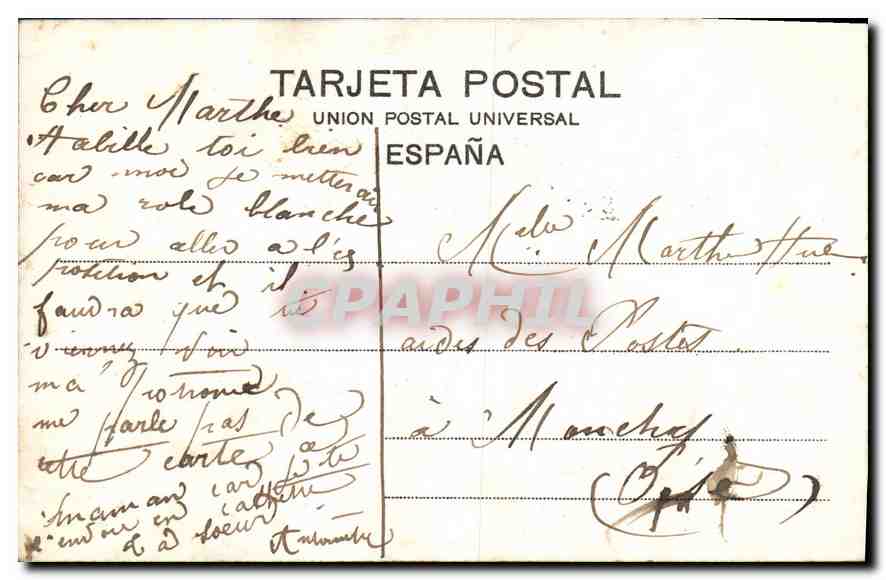 TARJETA POSTAL
UNION POSTAL UNIVERSAL
ESPAÑA
Cher Marthe
Habille toi bien
car moi je metterai
ma robe blanche
pour aller a l'ex
position et il
faudra que tu
viennez voir
ma
me parle pas de
cette carte a
maman car je te
l'envoie en cachette
ta soeur
Antoinette
Melle Marthe Hue
aides des Postes
à Monchy
(Oise)
CPAPHIL